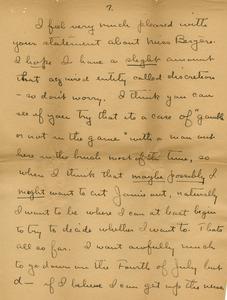 7.
I feel very much pleased with
your statement about Miss Bergère.
I hope I have a slight amount
that acquired entity called discretion
– so don't worry. I think you can
see if you try that its a case of
or not in the game" with a man out
here in the bush most of the time, so
when I think that maybe possibly I
might want to cut Jamie out, naturally
I want to be where I can at least begin
to try to decide whether I want to. Thats
all so far. I want awfully much
to go down on the Fourth of July but
– if I believe I can get up the nerve